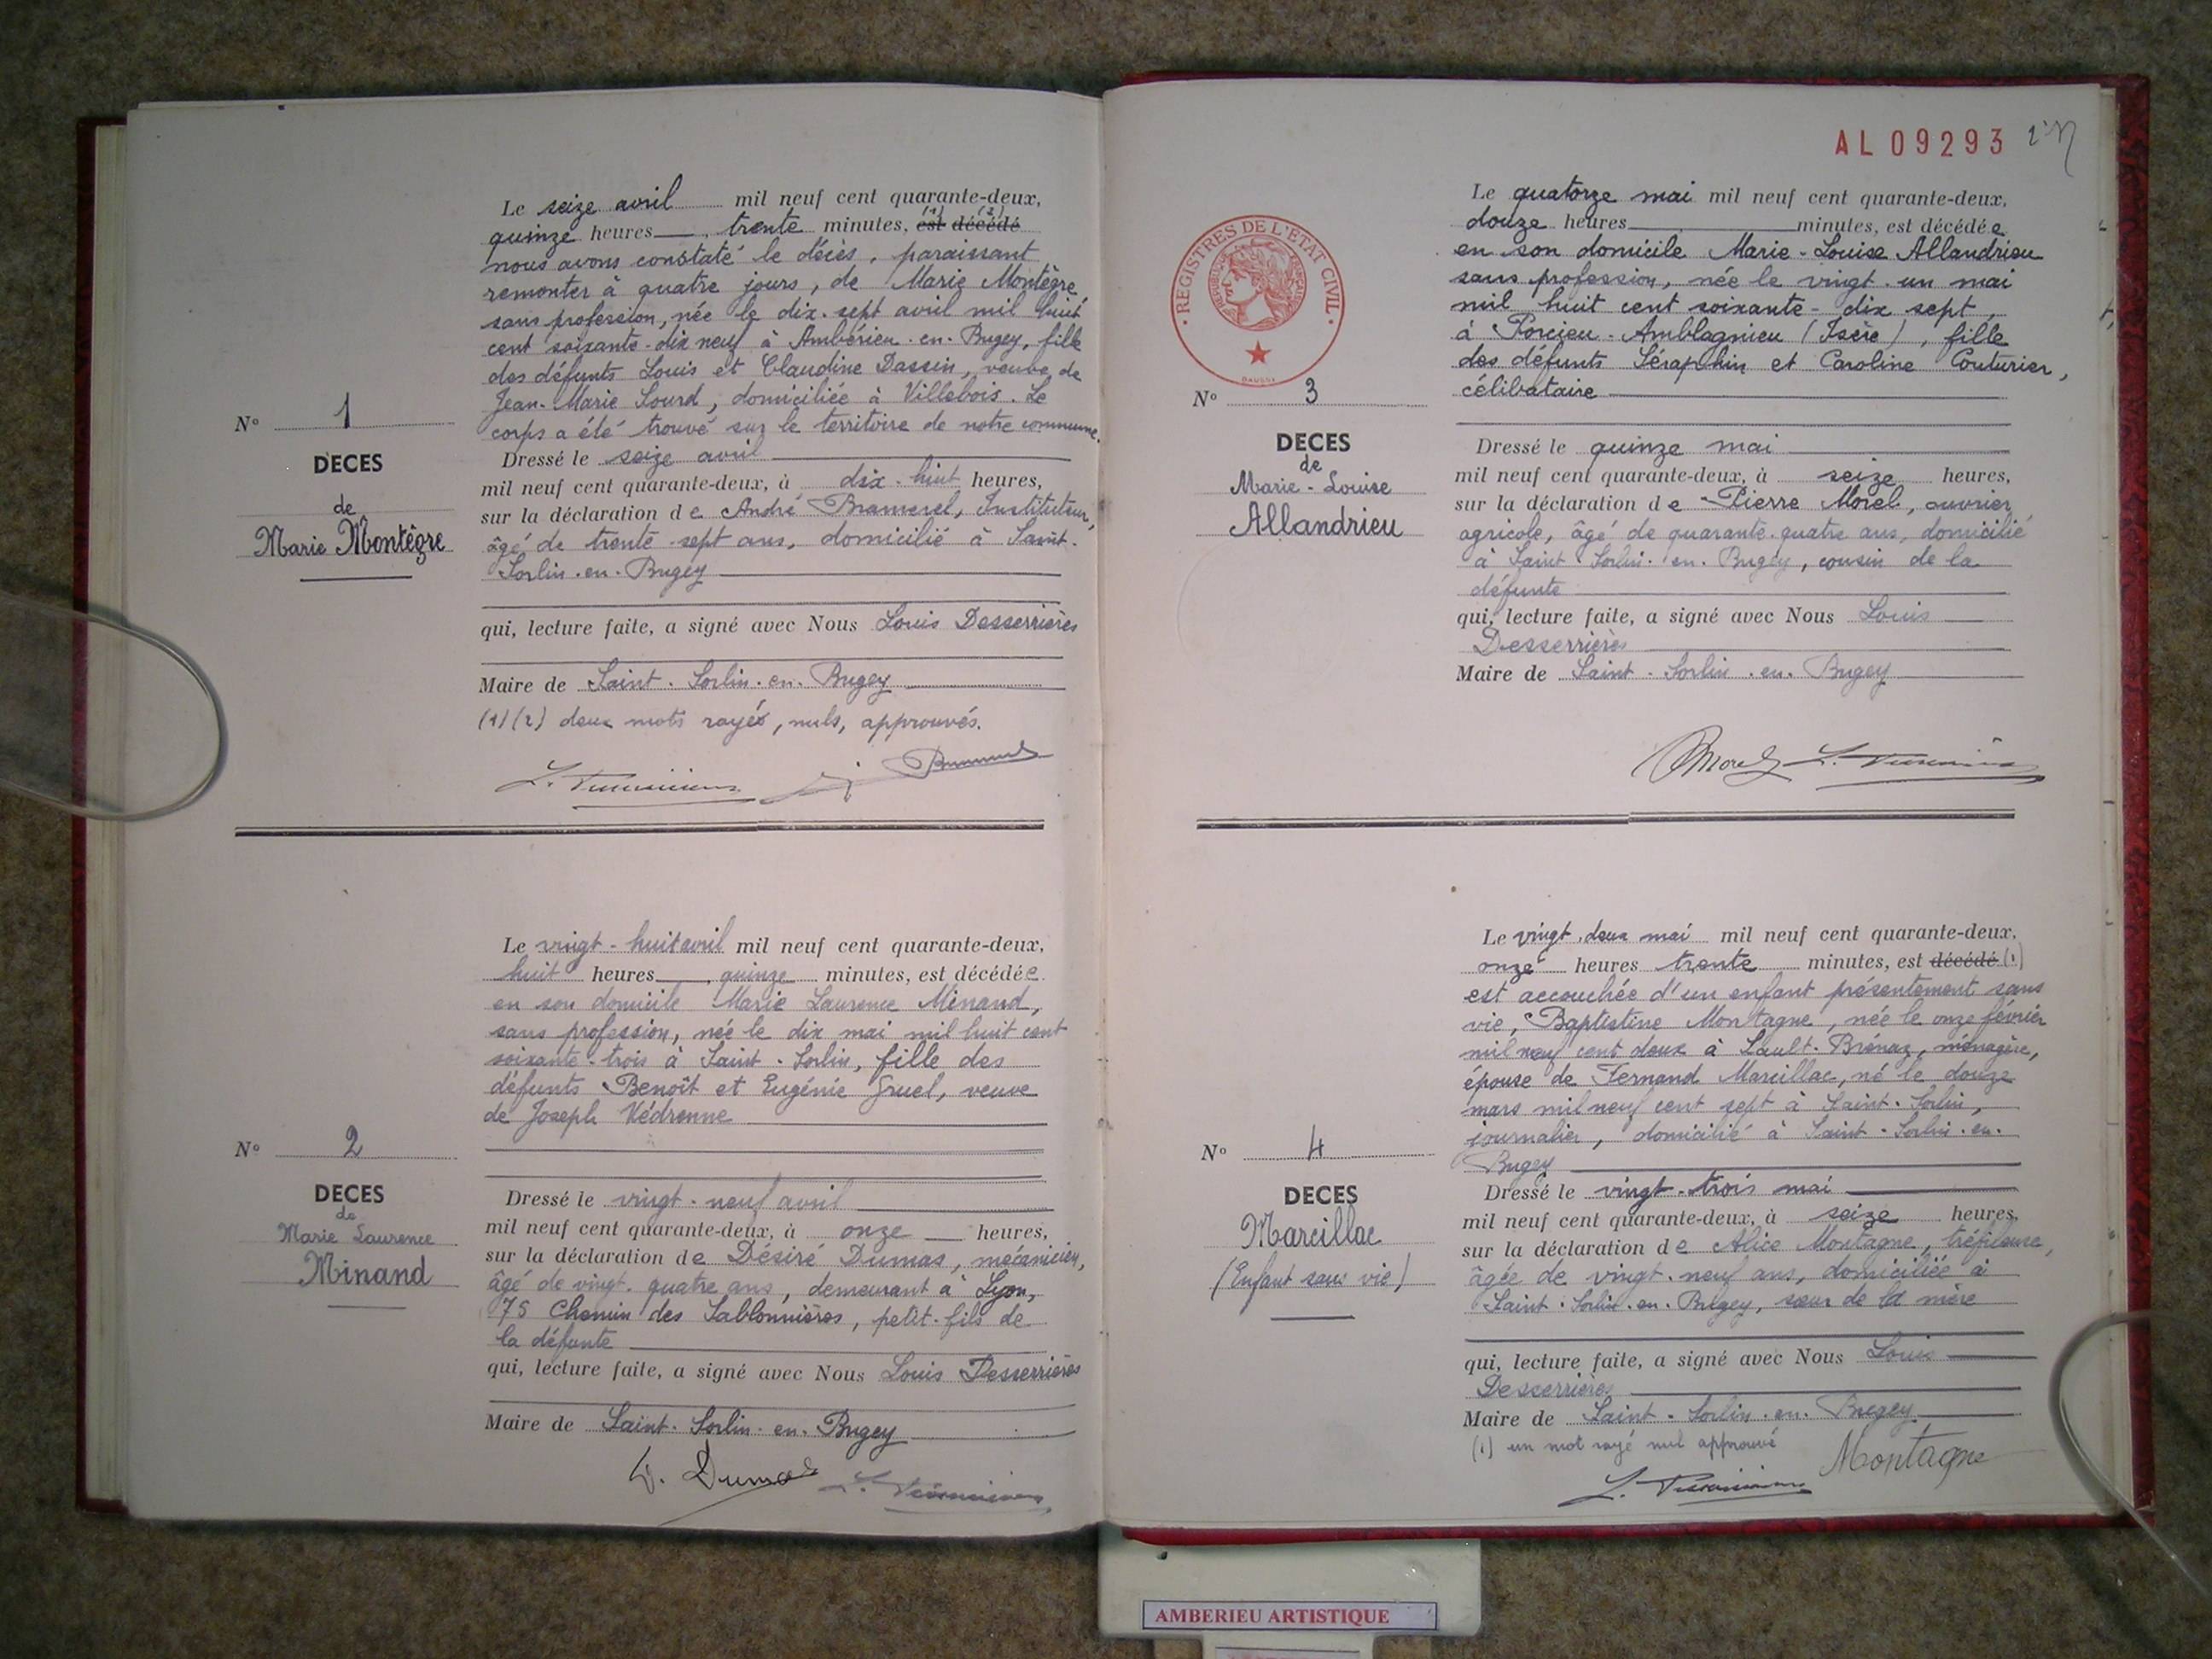 Nº 1
DECES
de
Marie Montègre
Le seize avril mil neuf cent quarante-deux,
quinze heures, trente minutes, est (1) décédé (2)
nous avons constaté le décès, paraissant
remonter à quatre jours, de Marie Montègre
sans profession, née le dix-sept avril mil huit
cent soixante-dix neuf à Ambérieu-en-Bugey, fille
des défunts Louis et Claudine Dassin, veuve de
Jean-Marie Sourd, domiciliée à Villebois. Le
corps a été trouvé sur le territoire de notre commune.
Dressé le seize avril
mil neuf cent quarante-deux, à dix-huit heures,
sur la déclaration de André Bramerel, Instituteur,
âgé de trente-sept ans, domicilié à Saint-
Sorlin-en-Bugey
qui, lecture faite, a signé avec Nous Louis Desserrières
Maire de Saint-Sorlin-en-Bugey
(1) (2) deux mots rayés, nuls, approuvés.
Nº 2
DECES
de
Marie Laurence
Minand
Le vingt-huit avril mil neuf cent quarante-deux,
huit heures, quinze minutes, est décédée
en son domicile Marie Laurence Minand,
sans profession, née le dix mai mil huit cent
soixante-trois à Saint-Sorlin, fille des
défunts Benoît et Eugénie Gruel, veuve
de Joseph Védrenne
Dressé le vingt-neuf avril
mil neuf cent quarante-deux, à onze heures,
sur la déclaration de Désiré Dumas, mécanicien,
âgé de vingt-quatre ans, demeurant à Lyon,
75 Chemin des Sablonnières, petit-fils de
la défunte
qui, lecture faite, a signé avec Nous Louis Desserrières
Maire de Saint-Sorlin-en-Bugey
D. Dumas
AL 09293
REGISTRES DE L'ETAT CIVIL
Nº 3
DECES
de
Marie-Louise
Allandrieu
Le quatorze mai mil neuf cent quarante-deux,
douze heures minutes, est décédée
en son domicile Marie-Louise Allandrieu
sans profession, née le vingt-un mai
mil huit cent soixante-dix sept,
à Porcieu-Amblagnieu (Isère), fille
des défunts Séraphin et Caroline Couturier,
célibataire
Dressé le quinze mai
mil neuf cent quarante-deux, à seize heures,
sur la déclaration de Pierre Morel, ouvrier
agricole, âgé de quarante-quatre ans, domicilié
à Saint-Sorlin-en-Bugey, cousin de la
défunte
qui, lecture faite, a signé avec Nous Louis
Desserrières
Maire de Saint-Sorlin-en-Bugey
Morel
Nº 4
DECES
Marcillac
(Enfant sans vie)
Le vingt-deux mai mil neuf cent quarante-deux,
onze heures trente minutes, est décédé (1)
est accouchée d'un enfant présentement sans
vie, Baptistine Montagne, née le onze février
mil neuf cent deux à Sault-Brenaz, ménagère,
épouse de Fernand Marcillac, né le douze
mars mil neuf cent sept à Saint-Sorlin,
journalier, domicilié à Saint-Sorlin-en-
Bugey
Dressé le vingt-trois mai
mil neuf cent quarante-deux, à seize heures,
sur la déclaration de Alice Montagne, tréfileuse,
âgée de vingt-neuf ans, domiciliée à
Saint-Sorlin-en-Bugey, sœur de la mère
qui, lecture faite, a signé avec Nous Louis
Desserrières
Maire de Saint-Sorlin-en-Bugey
(1) un mot rayé nul approuvé
Montagne
AMBERIEU ARTISTIQUE